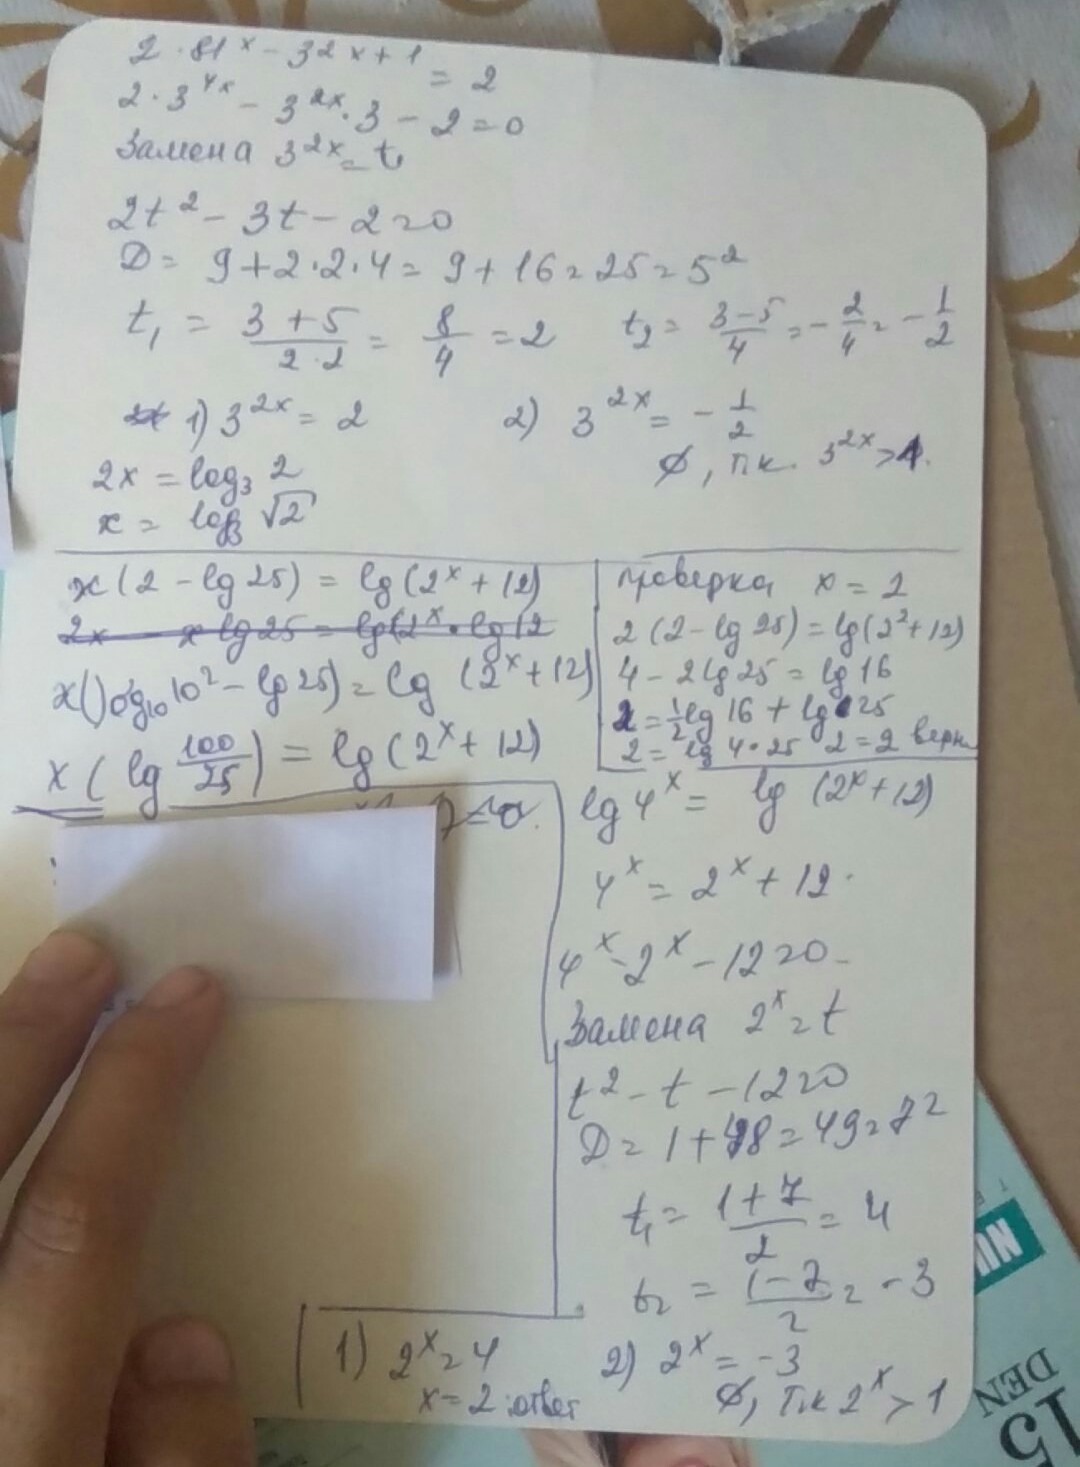 2 · 81^x − 3^2x+1 = 2
2 · 3^4x − 3^2x · 3 − 2 = 0
Замена 3^2x = t
2t^2 − 3t − 2 = 0
D = 9 + 2·2·4 = 9 + 16 = 25 = 5^2
t1 = (3+5)/(2·2) = 8/4 = 2 t2 = (3−5)/4 = −2/4 = −1/2
1) 3^2x = 2 2) 3^2x = −1/2
∅, т.к. 3^2x >1.
2x = log3 2
x = log3 √2
x (2 − lg 25) = lg (2^x + 12)
2x − x lg 25 = lg(2^x · lg 12
x(log10 10^2 − lg 25) = lg (2^x + 12)
x (lg 100/25) = lg (2^x + 12)
проверка x = 2
2 (2 − lg 25) = lg(2^2 + 12)
4 − 2lg 25 = lg 16
2 = 1/2 lg 16 + lg 25
2 = lg 4·25 2 = 2 верн
lg 4^x = lg (2^x + 12)
4^x = 2^x + 12
4^x − 2^x − 12 = 0
Замена 2^x = t
t^2 − t − 12 = 0
D = 1 + 48 = 49 = 7^2
t1 = (1+7)/2 = 4
t2 = (1−7)/2 = −3
1) 2^x = 4 2) 2^x = −3
x = 2 :ответ ∅, т.к 2^x > 1
15
DEN